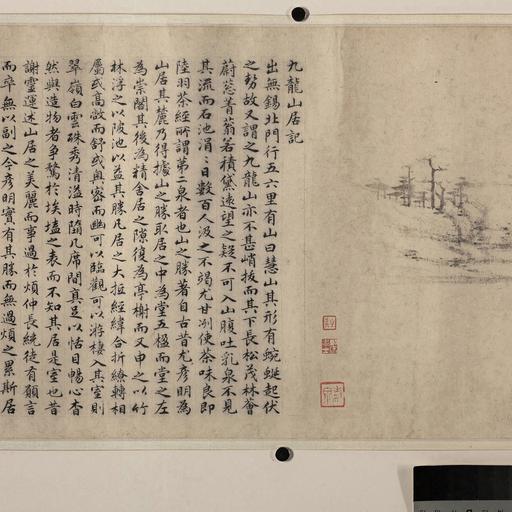 九龍山居記
出無錫北門行五六里有山曰慧山其形有蜿蜒起伏
之勢故又謂之九龍山亦不甚峭拔而其下長松茂林薈
蔚葱菁蓊若積黛遠望之疑不可入山腹吐乳泉不見
其流而石池涓涓日數百人汲之不竭尤甘冽使茶味良即
陸羽茶經所謂第二泉者也山之勝著自古昔尤彦明為
山居其麓乃得據山之勝取居之中為堂五楹而堂之左
為崇閣其後為精舍居之隙後為亭榭而又申之以竹
林浮之以陂池以益其勝凡居之大抵經緯合折繚轉相
屬或高敞而舒或奥密而幽可以臨觀可以游棲入其室則
翠嶺白雲殊秀清溢時隨几席間真足以怡目暢心杳
然與造物者争騖於埃壒之表而不知其居是室也昔
謝靈運述山居之美麗而事過於煩仲長統徒有願言
而卒無以副之今彦明實有其勝而無過煩之累斯居